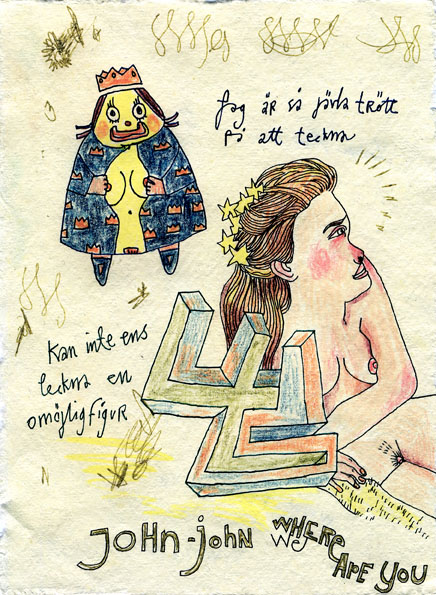 Jag är så jävla trött
på att teckna
Kan inte ens
teckna en
omöjlig figur
JOHN-JOHN WHERE
ARE YOU